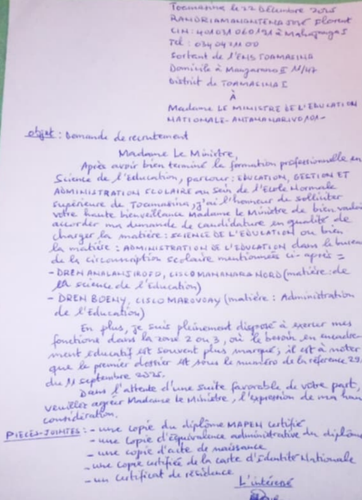 Toamasina le 22 Décembre 2025
RANDRIAMANANTENA José Florent
CIN: 401031 060 191 à Mahajanga I
Tél: 034 04 111 00
Sortant de l'ENS TOAMASINA
Domicile à Mangarano II 11/47
District de TOAMASINA I
À
Madame LE MINISTRE DE L'EDUCATION
NATIONALE - ANTANANARIVO 101 -
objet: Demande de recrutement
Madame Le Ministre,
Après avoir bien terminé la formation professionnelle en
Science de l'Education, parcours: EDUCATION, GESTION ET
ADMINISTRATION SCOLAIRE au sein de l'école Normale
Supérieure de Toamasina, j'ai l'honneur de solliciter
votre haute bienveillance Madame le Ministre de bien vouloir
accorder ma demande de candidature en qualité de
changer la matière: SCIENCE DE L'EDUCATION ou bien
la matière: ADMINISTRATION DE L'EDUCATION dans le bureau
de la circonscription scolaire mentionnées ci-après =
- DREN ANALANJIROFO, CISCO MANANARA NORD (matière: de
la science de l'Education)
- DREN BOENY, CISCO MAROVOAY (matière: Administration
de l'Education)
En plus, je suis pleinement disposé à exercer mes
fonctions dans la zone 2 ou 3, où le besoin en encadre-
ment éducatif est souvent plus marqué, il est à noter
que le premier dossier est sous le numéro de la référence 22.
du 11 septembre 2025.
Dans l'attente d'une suite favorable de votre part,
veuillez agréer Madame le Ministre, l'expression de ma haute
considération.
PIECES-JOINTES: - une copie du diplôme MAPEN certifié
- une copie d'équivalence administrative du diplôme
- une copie d'acte de naissance
- une copie certifiée de la carte d'identité Nationale
- un certificat de résidence.
L'intéressé